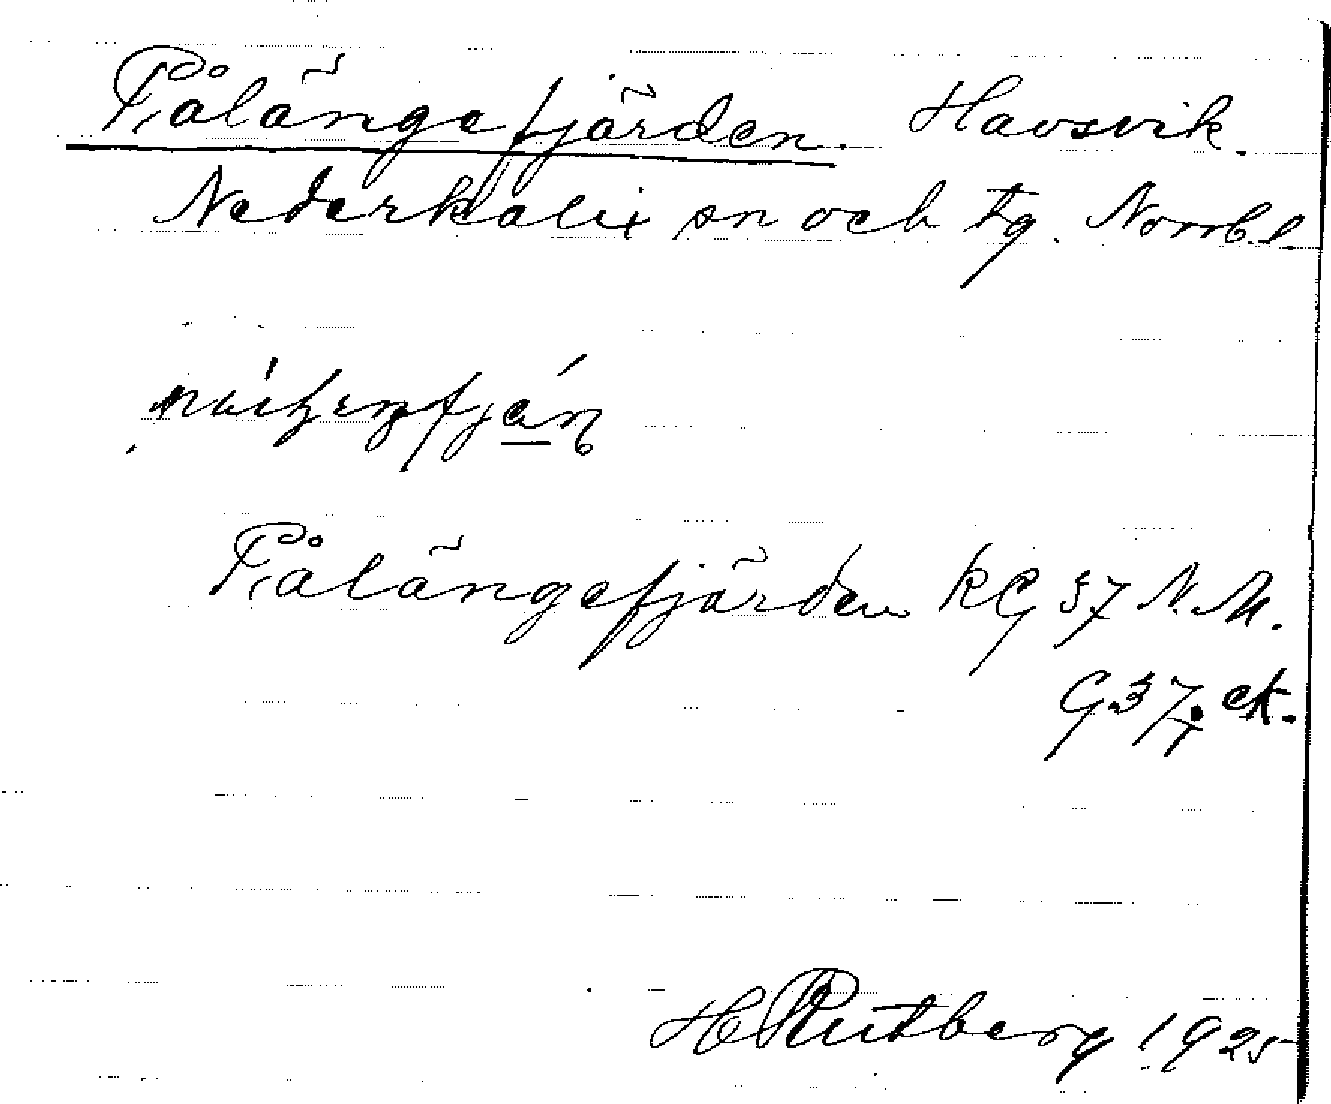 Pålängefjärden. Havsvik.
Nederkalix sn och tg. Norrb. l.
Pålängefjärden RG 37 N. M.
G. 37. ek.
H Rutberg 1925